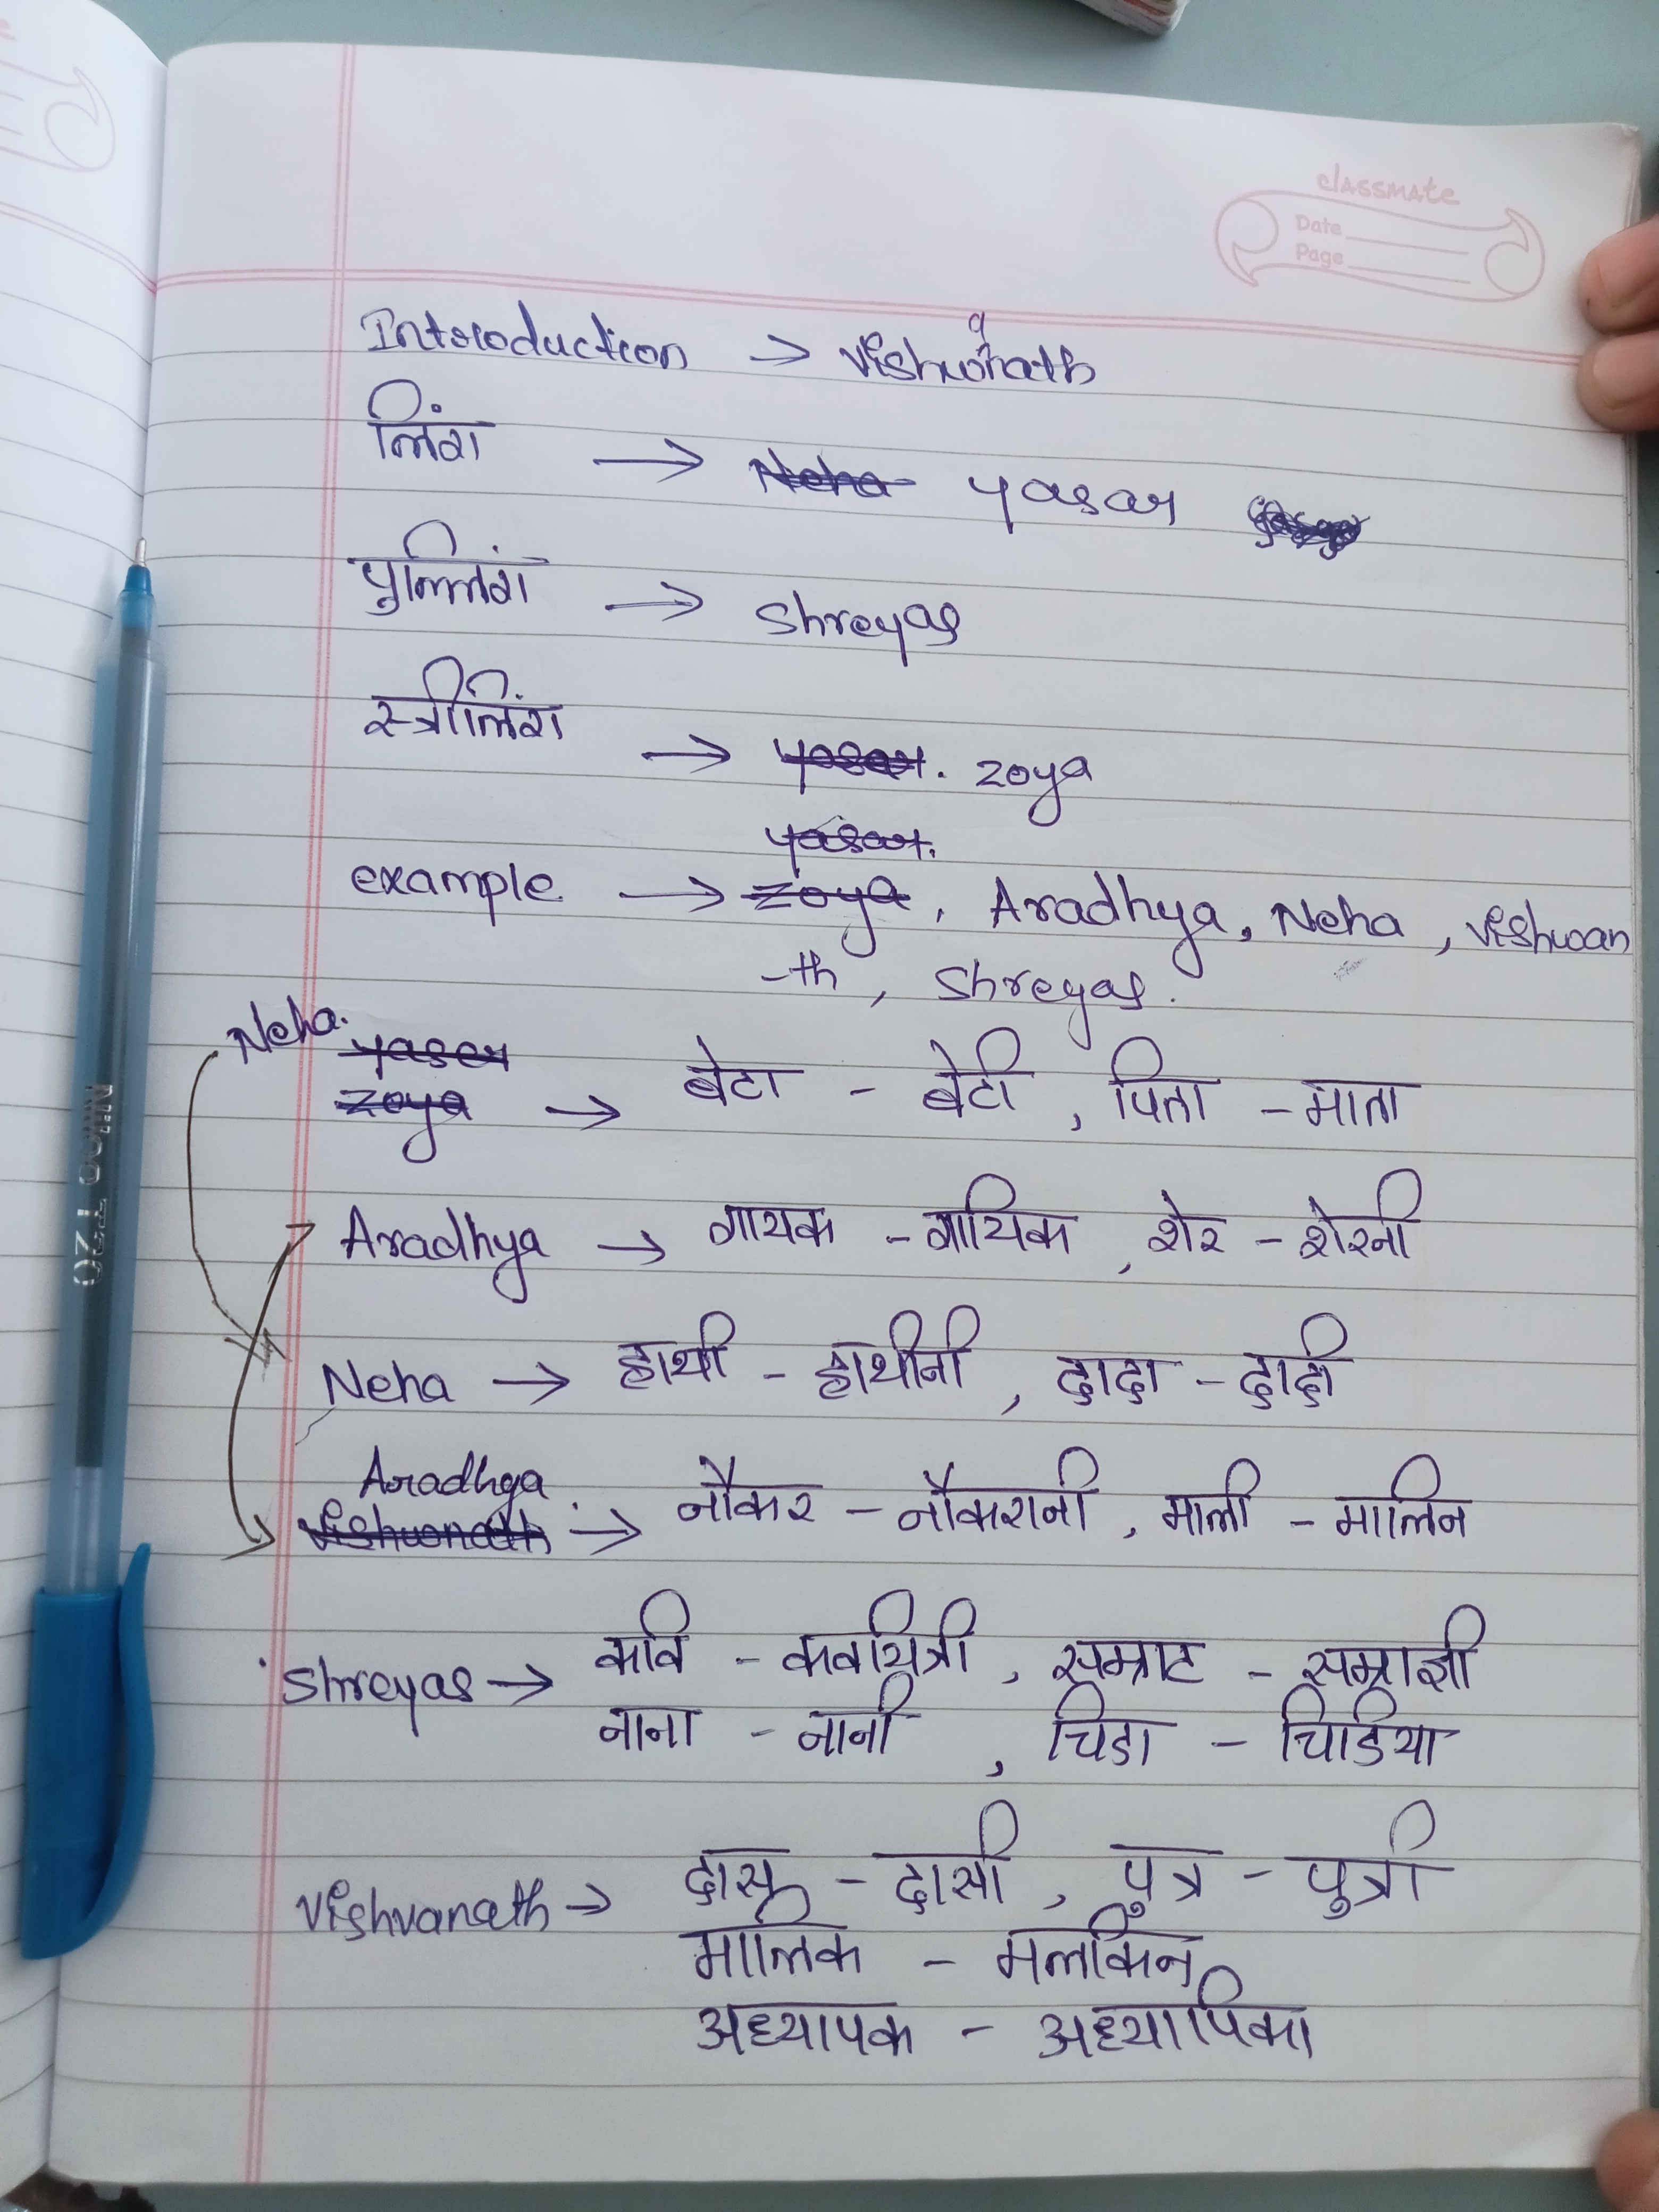 classmate
Date
Page
Introduction → Vishwanath
लिंग → Neha yasar
पुल्लिंग → Shreyas
स्त्रीलिंग → yasar. zoya
yasar.
example → zoya, Aradhya, Neha, Vishwan
-th, Shreyas.
Neha. yaser
zoya → बेटा - बेटी, पिता - माता
Aradhya → गायक - गायिक, शेर - शेरनी
Neha → हाथी - हाथीनी, दादा - दादी
Aradhya
Vishwanath → नौकर - नौकरानी, माली - मालिन
Shreyas → कवि - कवयित्री, सम्राट - सम्राज्ञी
नाना - नानी, चिडा - चिडिया
Vishvanath → दास - दासी, पुत्र - पुत्री
मालिक - मलकिन
अध्यापक - अध्यापिका
Niloo T20